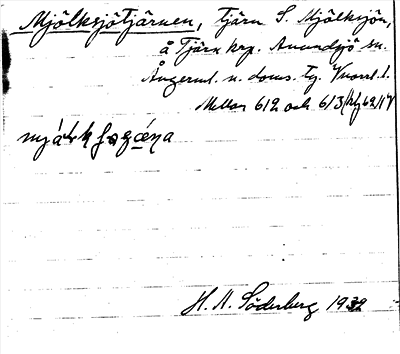 Mjölksjötjärnen, tjärn S. Mjölksjön,
å Tjärn krp. Anundsjö sn.
Ångerml. n. doms. tg. Vnorrl. l.
Mellan 612 och 613
H. N. Söderberg 1932